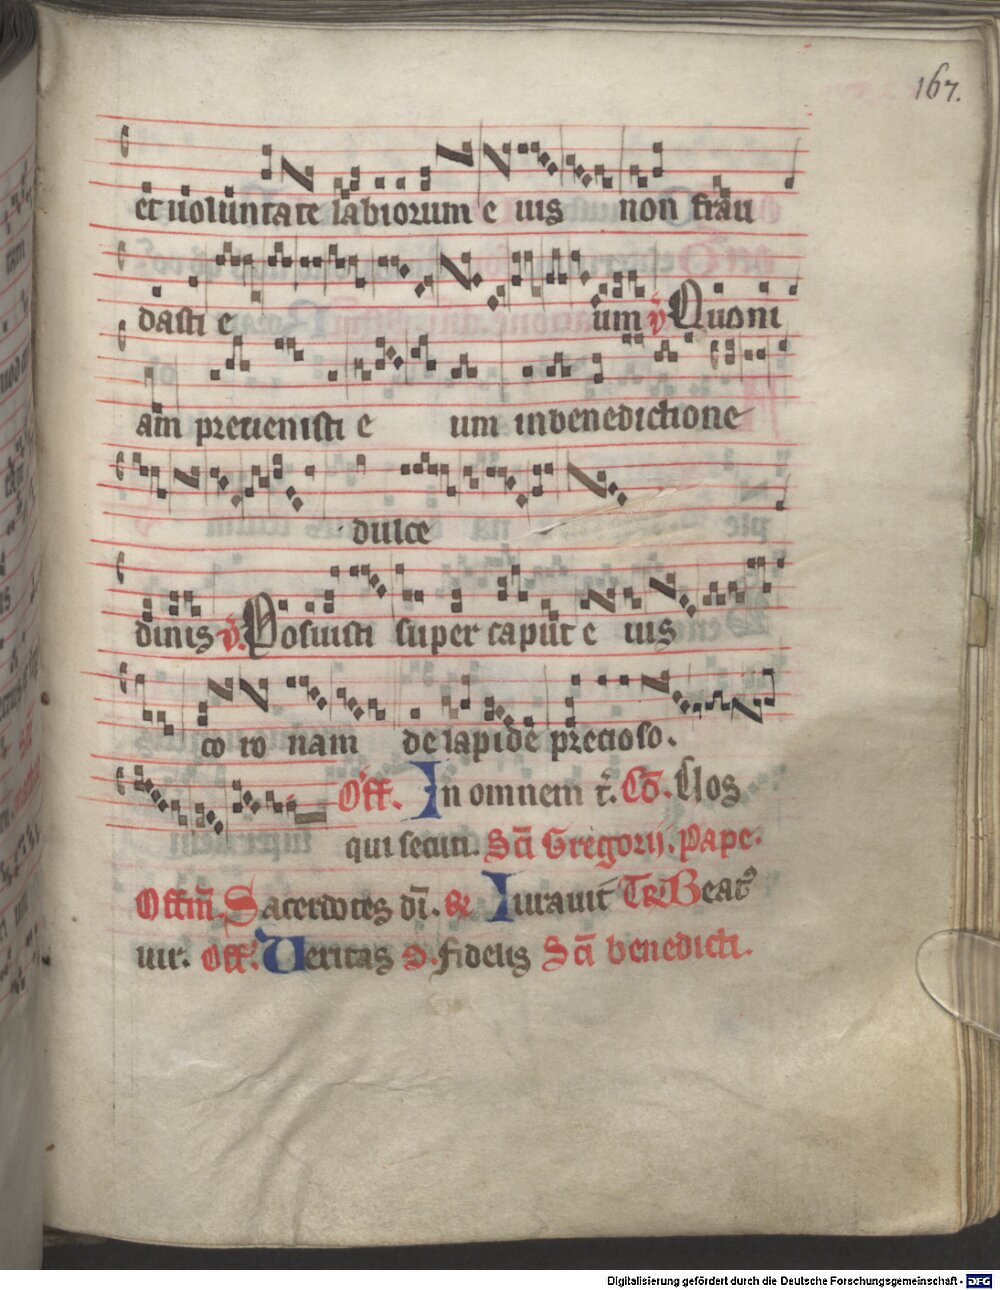 167.
et uoluntate labiorum e ius non frau
dasti e um v̄ Quoni
am preuenisti e um in benedictione
dulce
dinis v̄. Posuisti super caput e ius
co ro nam de lapide precioso.
Off. In omnem t̄. Cō. Uos
qui secuti. Sc̄i Gregorij. Pape.
Offm̄. Sacerdotes dī. Iurauit TR Beat⁹
uir. Off. Ueritas fidelis Sc̄i benedicti.
Digitalisierung gefördert durch die Deutsche Forschungsgemeinschaft - DFG